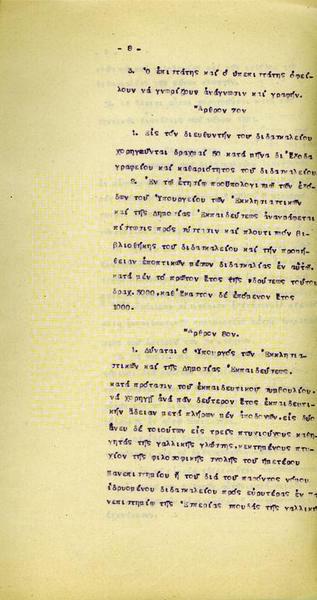 - 8 -
3. Ὁ ἐπιστάτης καί ὁ ὑπεπιστάτης ὀφεί-
λουν νά γνωρίζουν ἀνάγνωσιν καί γραφήν.
Ἄρθρον 7ον
1. Εἰς τόν διευθυντήν τοῦ διδασκαλείου
χορηγοῦνται δραχμαί 50 κατά μῆνα δι' ἔξοδα
γραφείου καί καθαριότητος τοῦ διδασκαλείου
2. Ἐν τῷ ἐτησίῳ προϋπολογισμῷ τῶν ἐξό-
δων τοῦ Ὑπουργείου τῶν Ἐκκλησιαστικῶν
καί τῆς Δημοσίας Ἐκπαιδεύσεως ἀναγράφεται
πίστωσις πρός σύστασιν καί πλουτισμόν βι-
βλιοθήκης τοῦ διδασκαλείου καί τήν προμή-
θειαν ἐποπτικῶν μέσων διδασκαλίας ἐν αὐτῷ.
κατά μέν τό πρῶτον ἔτος τῆς ἱδρύσεως τούτου
δραχ. 5000, καθ' ἕκαστον δέ ἑπόμενον ἔτος
1000.
Ἄρθρον 8ον.
1. Δύναται ὁ Ὑπουργός τῶν Ἐκκλησια-
στικῶν καί τῆς Δημοσίας Ἐκπαιδεύσεως.
κατά πρότασιν τοῦ ἐκπαιδευτικοῦ συμβουλίου.
νά χορηγῇ ἀνά πᾶν δεύτερον ἔτος ἐκπαιδευτι-
κήν ἄδειαν μετά πλήρων μέν ἀποδοχῶν, εἰς δύο
ἄνευ δέ τοιούτων εἰς τρεῖς πτυχιούχους καθη-
γητάς τῆς γαλλικῆς γλώσσης, κεκτημένους πτυ-
χίον τῆς φιλοσοφικῆς σχολῆς τοῦ ἡμετέρου
πανεπιστημίου ἤ τοῦ διά τοῦ παρόντος νόμου
ἱδρυομένου διδασκαλείου πρός εὐρυτέρας ἐν
νεπιστημίῳ τῆς Ἑσπερίας σπουδάς τῆς γαλλικῆς